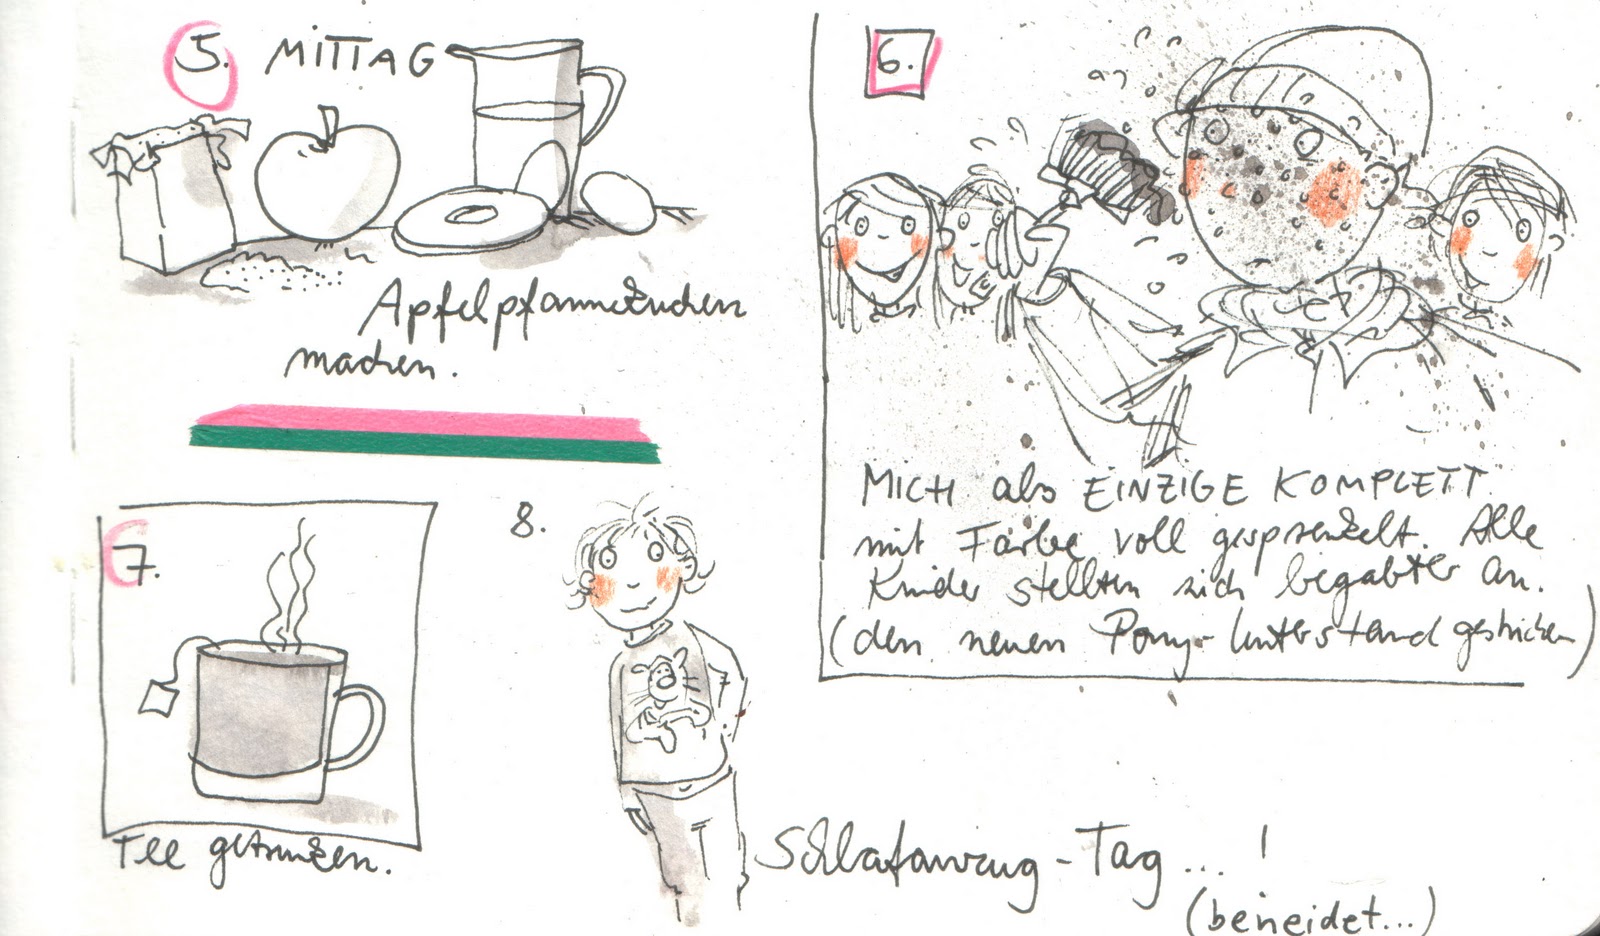 5. MITTAG
Apfelpfannekuchen
machen.
6.
MICH als EINZIGE KOMPLETT
mit Farbe voll gesprenkelt. Alle
Kinder stellten sich begabter an.
(den neuen Pony-Unterstand gestrichen)
7.
Tee getrunken.
8.
Schlafanzug-Tag...!
(beneidet...)